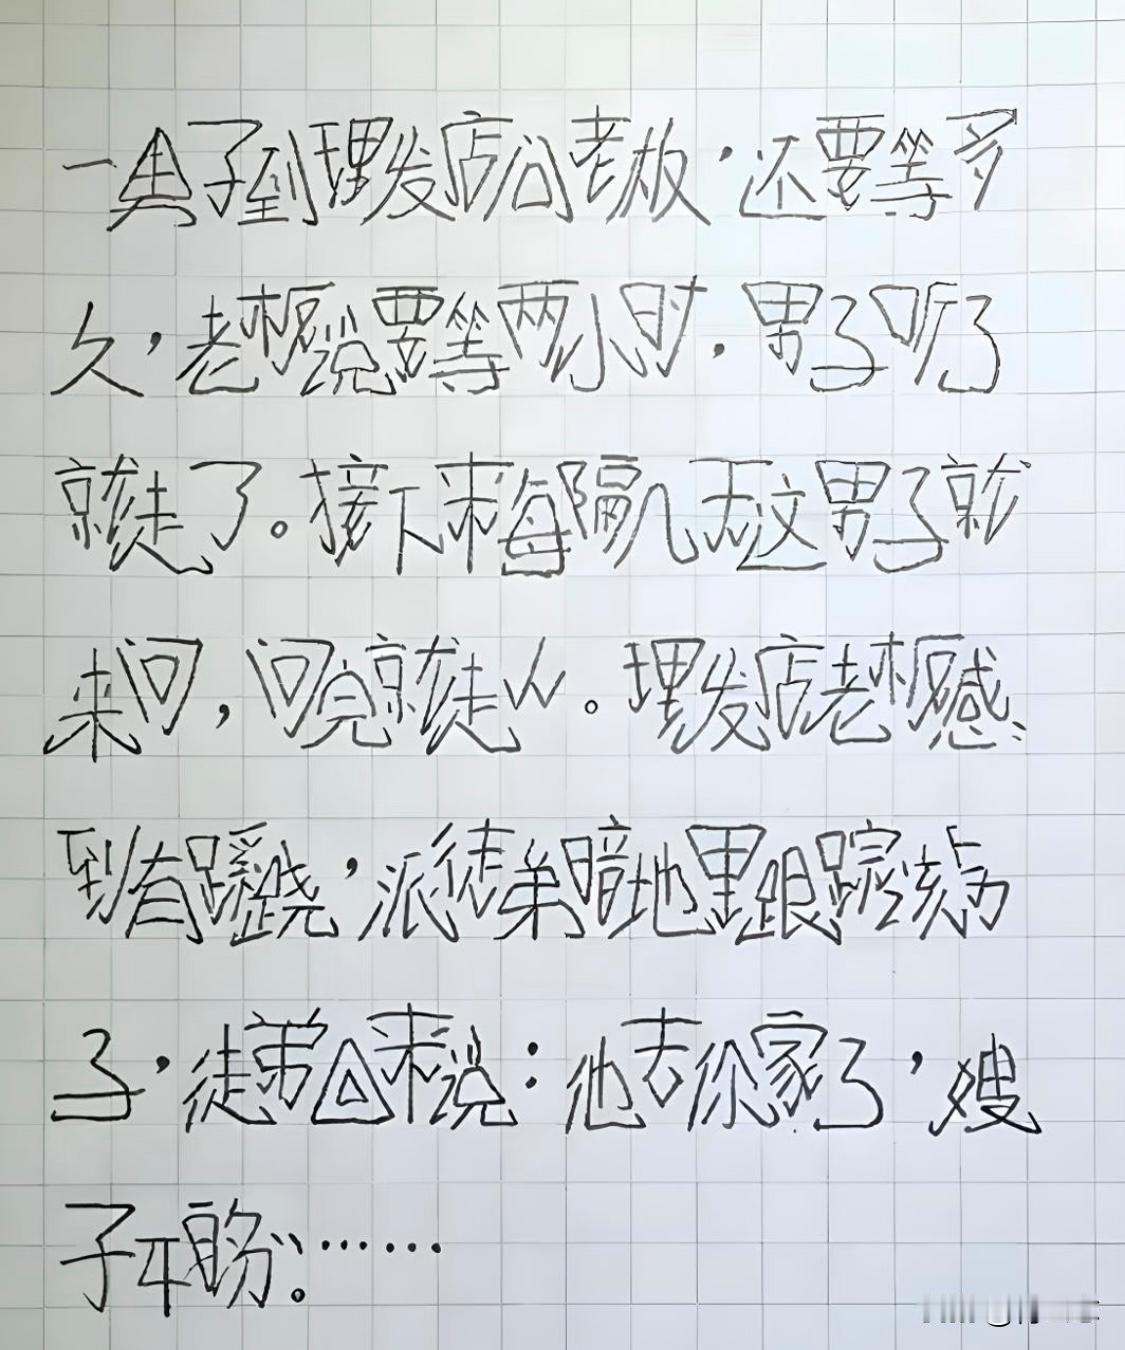 一男子到理发店问老板，还要等多
久，老板说要等两小时，男子听了
就走了。接下来每隔几天这男子就
来问，问完就走人。理发店老板感
到有蹊跷，派徒弟暗地里跟踪该男
子，徒弟回来说：他去你家了，嫂
子不